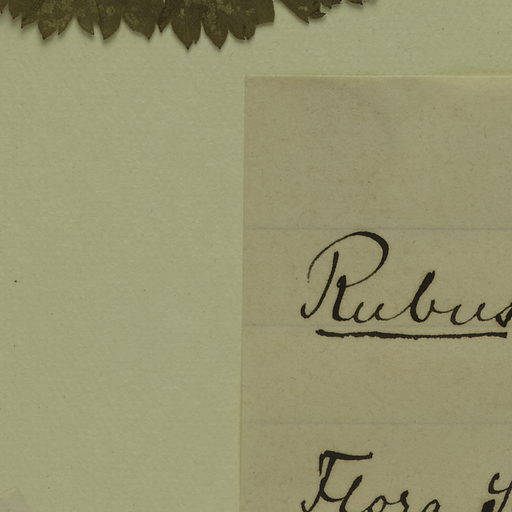 Rubus
Flora